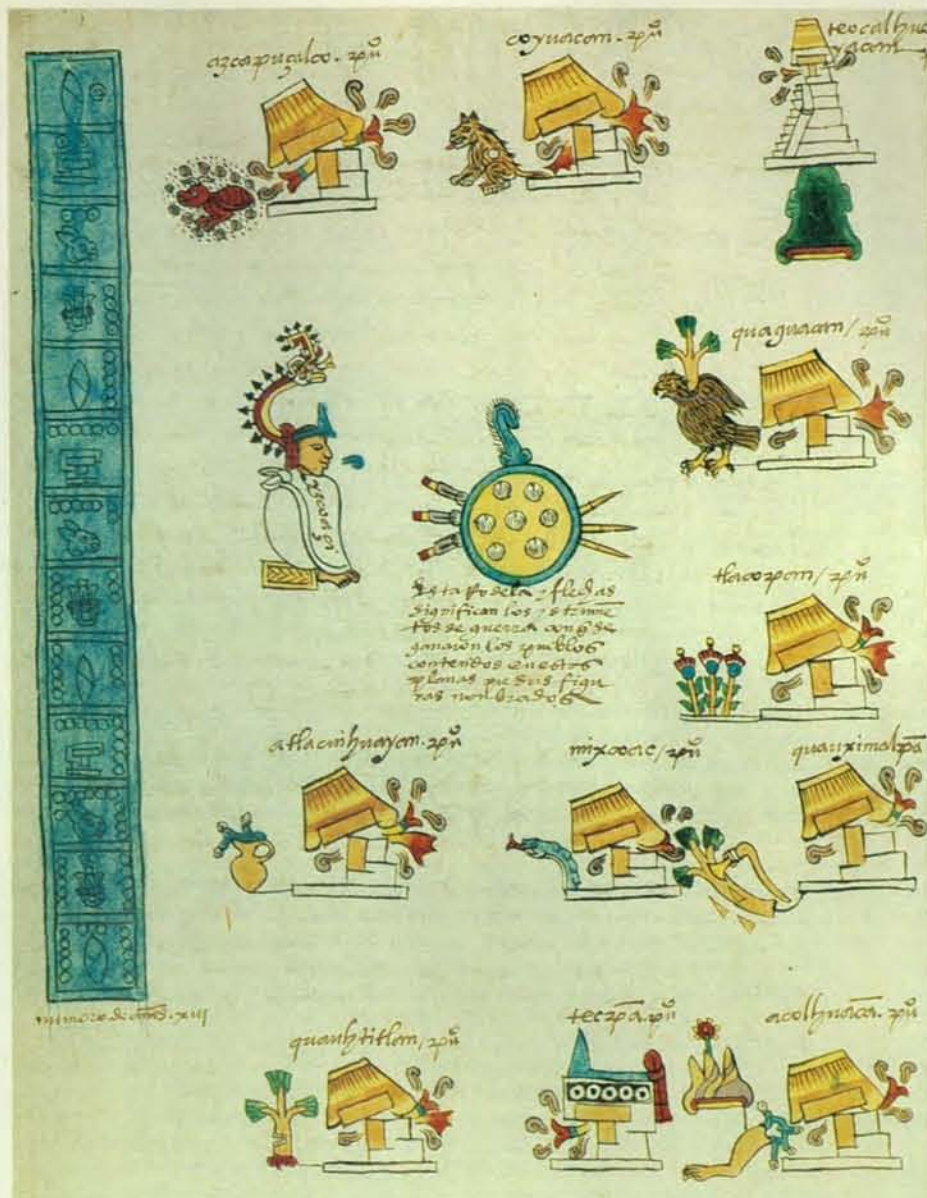 azcapuçalco. pu°
coyuacan. pu°
teocalhue
yacan
quaguacan / pu°
yzcoaçi
Esta Rodela y flechas
significan los ystrume
tos de guerra con q̄ se
ganaron los pueblos
contenidos en estas
planas por sus figu
ras nonbrados
tlacopan / pu°
atlacuihuayan. pu°
mixcoac / pu°
quauximalpā
numero de años. xiii
quauhtitlan / pu°
tecpā. pu°
acolhuacā. pu°